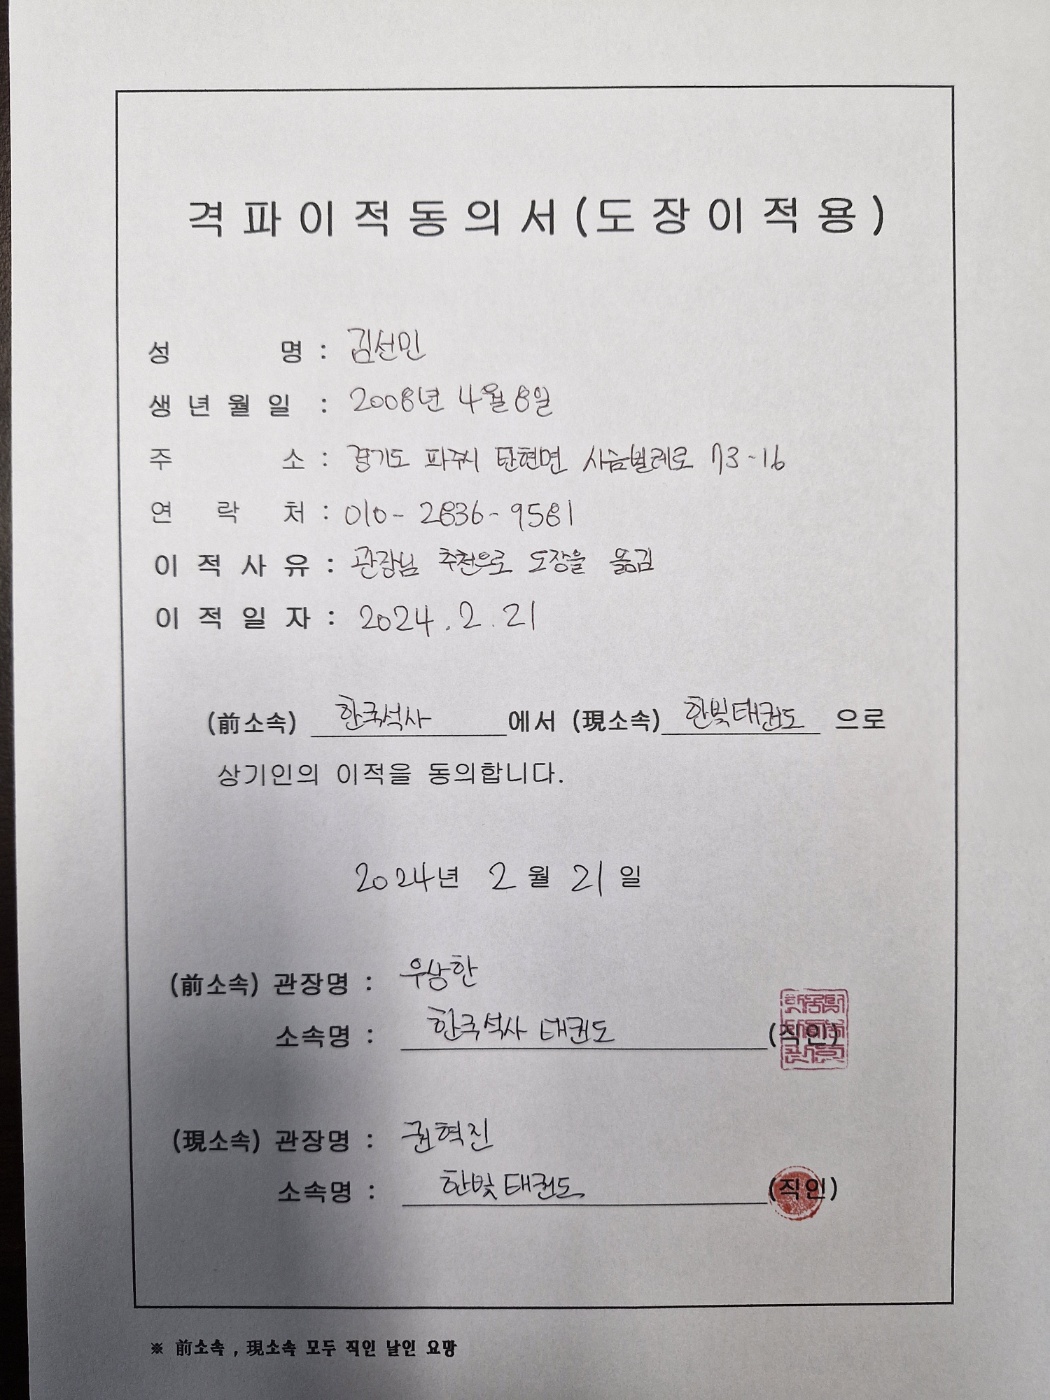 격파이적동의서(도장이적용)
성 명 : 김선민
생년월일 : 2008년 4월 8일
주 소 : 경기도 파주시 탄현면 사슴벌레로 73-16
연 락 처 : 010-2836-9581
이적사유 : 관장님 추천으로 도장을 옮김
이적일자 : 2024.2.21
(前소속) 한국석사 에서 (現소속) 한빛태권도 으로
상기인의 이적을 동의합니다.
2024년 2월 21일
(前소속) 관장명 : 우상한
소속명 : 한국석사 태권도 (직인)
(現소속) 관장명 : 권혁진
소속명 : 한빛태권도 (직인)
※ 前소속 , 現소속 모두 직인 날인 요망